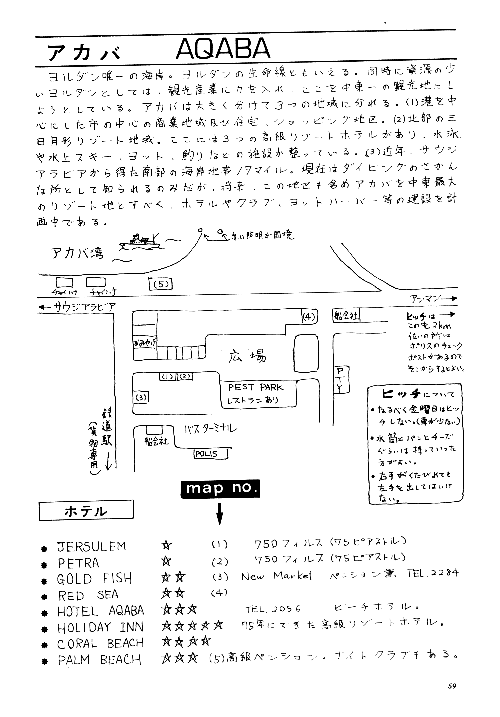 アカバ AQABA
ヨルダン唯一の海岸。ヨルダンの生命線ともいえる。同時に資源の少
ないヨルダンとしては、観光産業に力を入れ、ここを中東一の観光地にし
ようとしている。アカバは大きく分けて3つの地域に分れる。(1)港を中
心にした市の中心の商業地域及び住宅、ショッピング地区。(2)北部の三
日月形リゾート地域。ここには3つの高級リゾートホテルがあり、水泳
や水上スキー、ヨット、釣りなどの施設が整っている。(3)近年、サウジ
アラビアから得た南部の海岸地帯17マイル。現在はダイビングのさかん
な所として知られるのみだが、将来、この地区も含めアカバを中東最大
のリゾート地とすべく、ホテルやクラブ、ヨットハーバー等の建設を計
画中である。
アカバ湾
(5)
←サウジアラビア
アンマン→
ヒッチは→
この先2km
ポリスのチェック
ポストがあるので
そこからするとよい。
(4)
船会社
広場
(1)(2)
(3)
PEST PARK
レストランあり
バスターミナル
船会社
POLIS
鉄道駅
(貨物専用)
ヒッチについて
・なるべく金曜日はヒッ
チしない。(車が少ない)
・水筒とパンとチーズ
ぐらいは持っていった
方がよい。
・右手がくたびれても
左手を出してはいけ
ない。
map no.
ホテル
● JERSULEM ☆ (1) 750フィルス(75ピアストル)
● PETRA ☆ (2) 750フィルス(75ピアストル)
● GOLD FISH ☆☆ (3) New Market ペンション兼 TEL.2284
● RED SEA ☆☆ (4)
● HOTEL AQABA ☆☆☆ TEL.2056 ビーチホテル。
● HOLIDAY INN ☆☆☆☆☆ 75年にできた高級リゾートホテル。
● CORAL BEACH ☆☆☆☆
● PALM BEACH ☆☆☆ (5)高級ペンション。ナイトクラブもある。
59